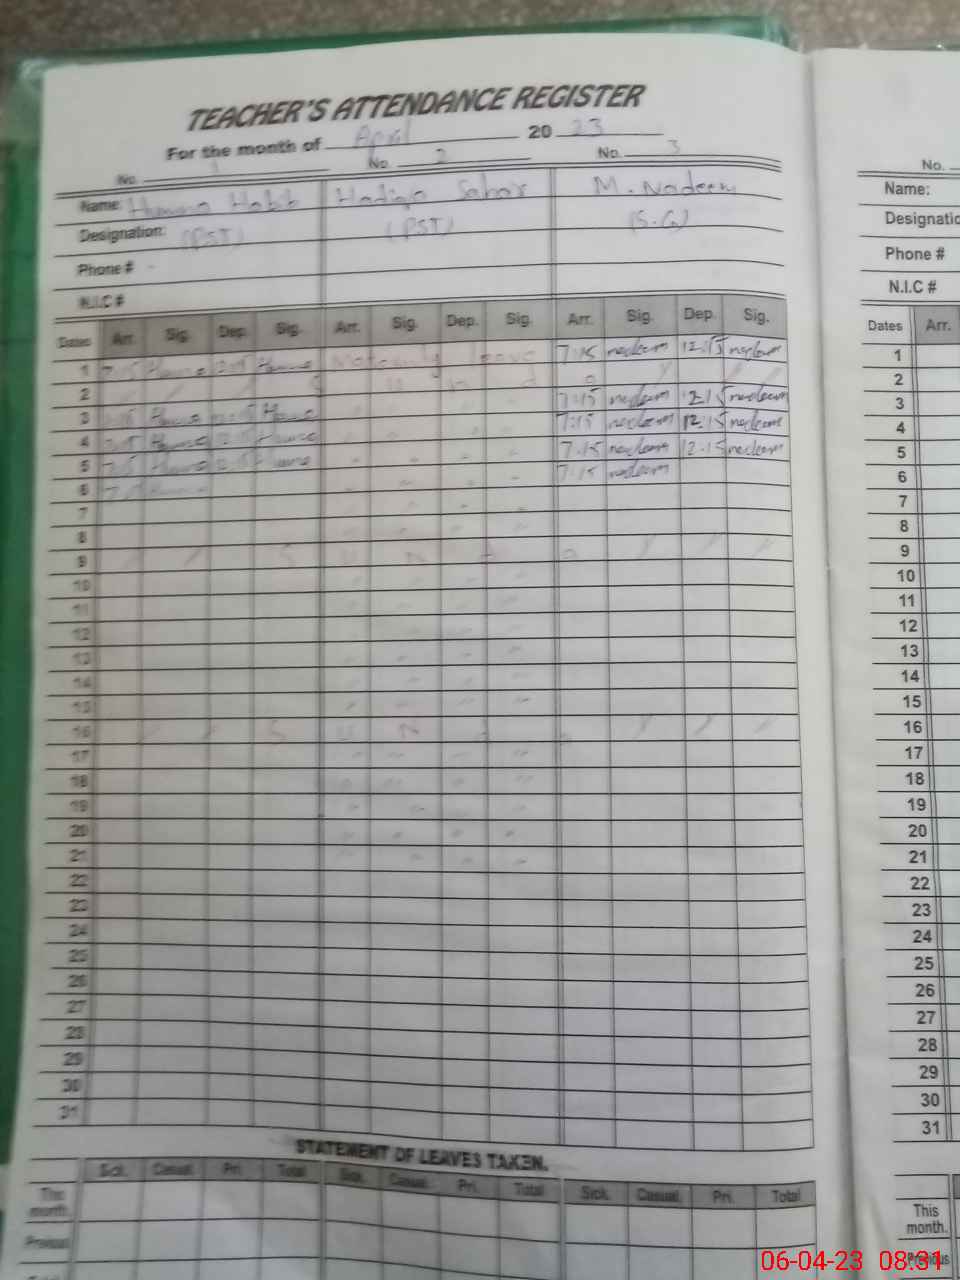 TEACHER'S ATTENDANCE REGISTER
For the month of April 20 23
No. 1 No. 2 No. 3
Name: Humna Habib Hadiya Sahar M. Nadeem
Designation: (PST) (PST) (S.G)
Phone # -
N.I.C #
Dates Arr. Sig. Dep. Sig. Arr. Sig. Dep. Sig. Arr. Sig. Dep. Sig.
1 7:15 12:15 Maternity leave 7:15 nadeem 12:15 nadeem
2 S U N D A Y
3 7:15 12:15 7:15 nadeem 12:15 nadeem
4 7:15 12:15 7:15 nadeem 12:15 nadeem
5 7:15 12:15 7:15 nadeem 12:15 nadeem
6 7:15 7:15 nadeem
7
8
9 S U N D A Y
10
11
12
13
14
15
16 S U N D A Y
17
18
19
20
21
22
23
24
25
26
27
28
29
30
31
STATEMENT OF LEAVES TAKEN.
Sick. Casual. Pri. Total Sick. Casual. Pri. Total Sick. Casual. Pri. Total
This
month.
Previous
No.
Name:
Designatio
Phone #
N.I.C #
Dates Arr.
1
2
3
4
5
6
7
8
9
10
11
12
13
14
15
16
17
18
19
20
21
22
23
24
25
26
27
28
29
30
31
This
month.
Previous
06-04-23 08:31